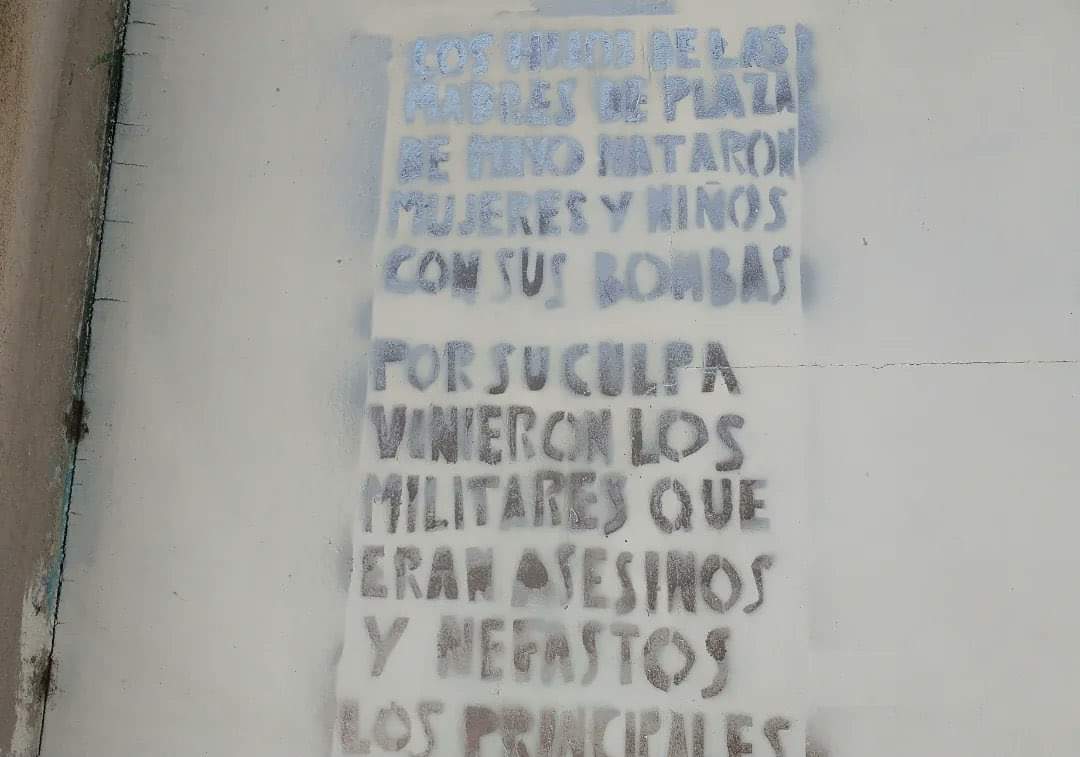 LOS HIJOS DE LAS
MADRES DE PLAZA
DE MAYO MATARON
MUJERES Y NIÑOS
CON SUS BOMBAS
POR SU CULPA
VINIERON LOS
MILITARES QUE
ERAN ASESINOS
Y NEFASTOS
LOS PRINCIPALES